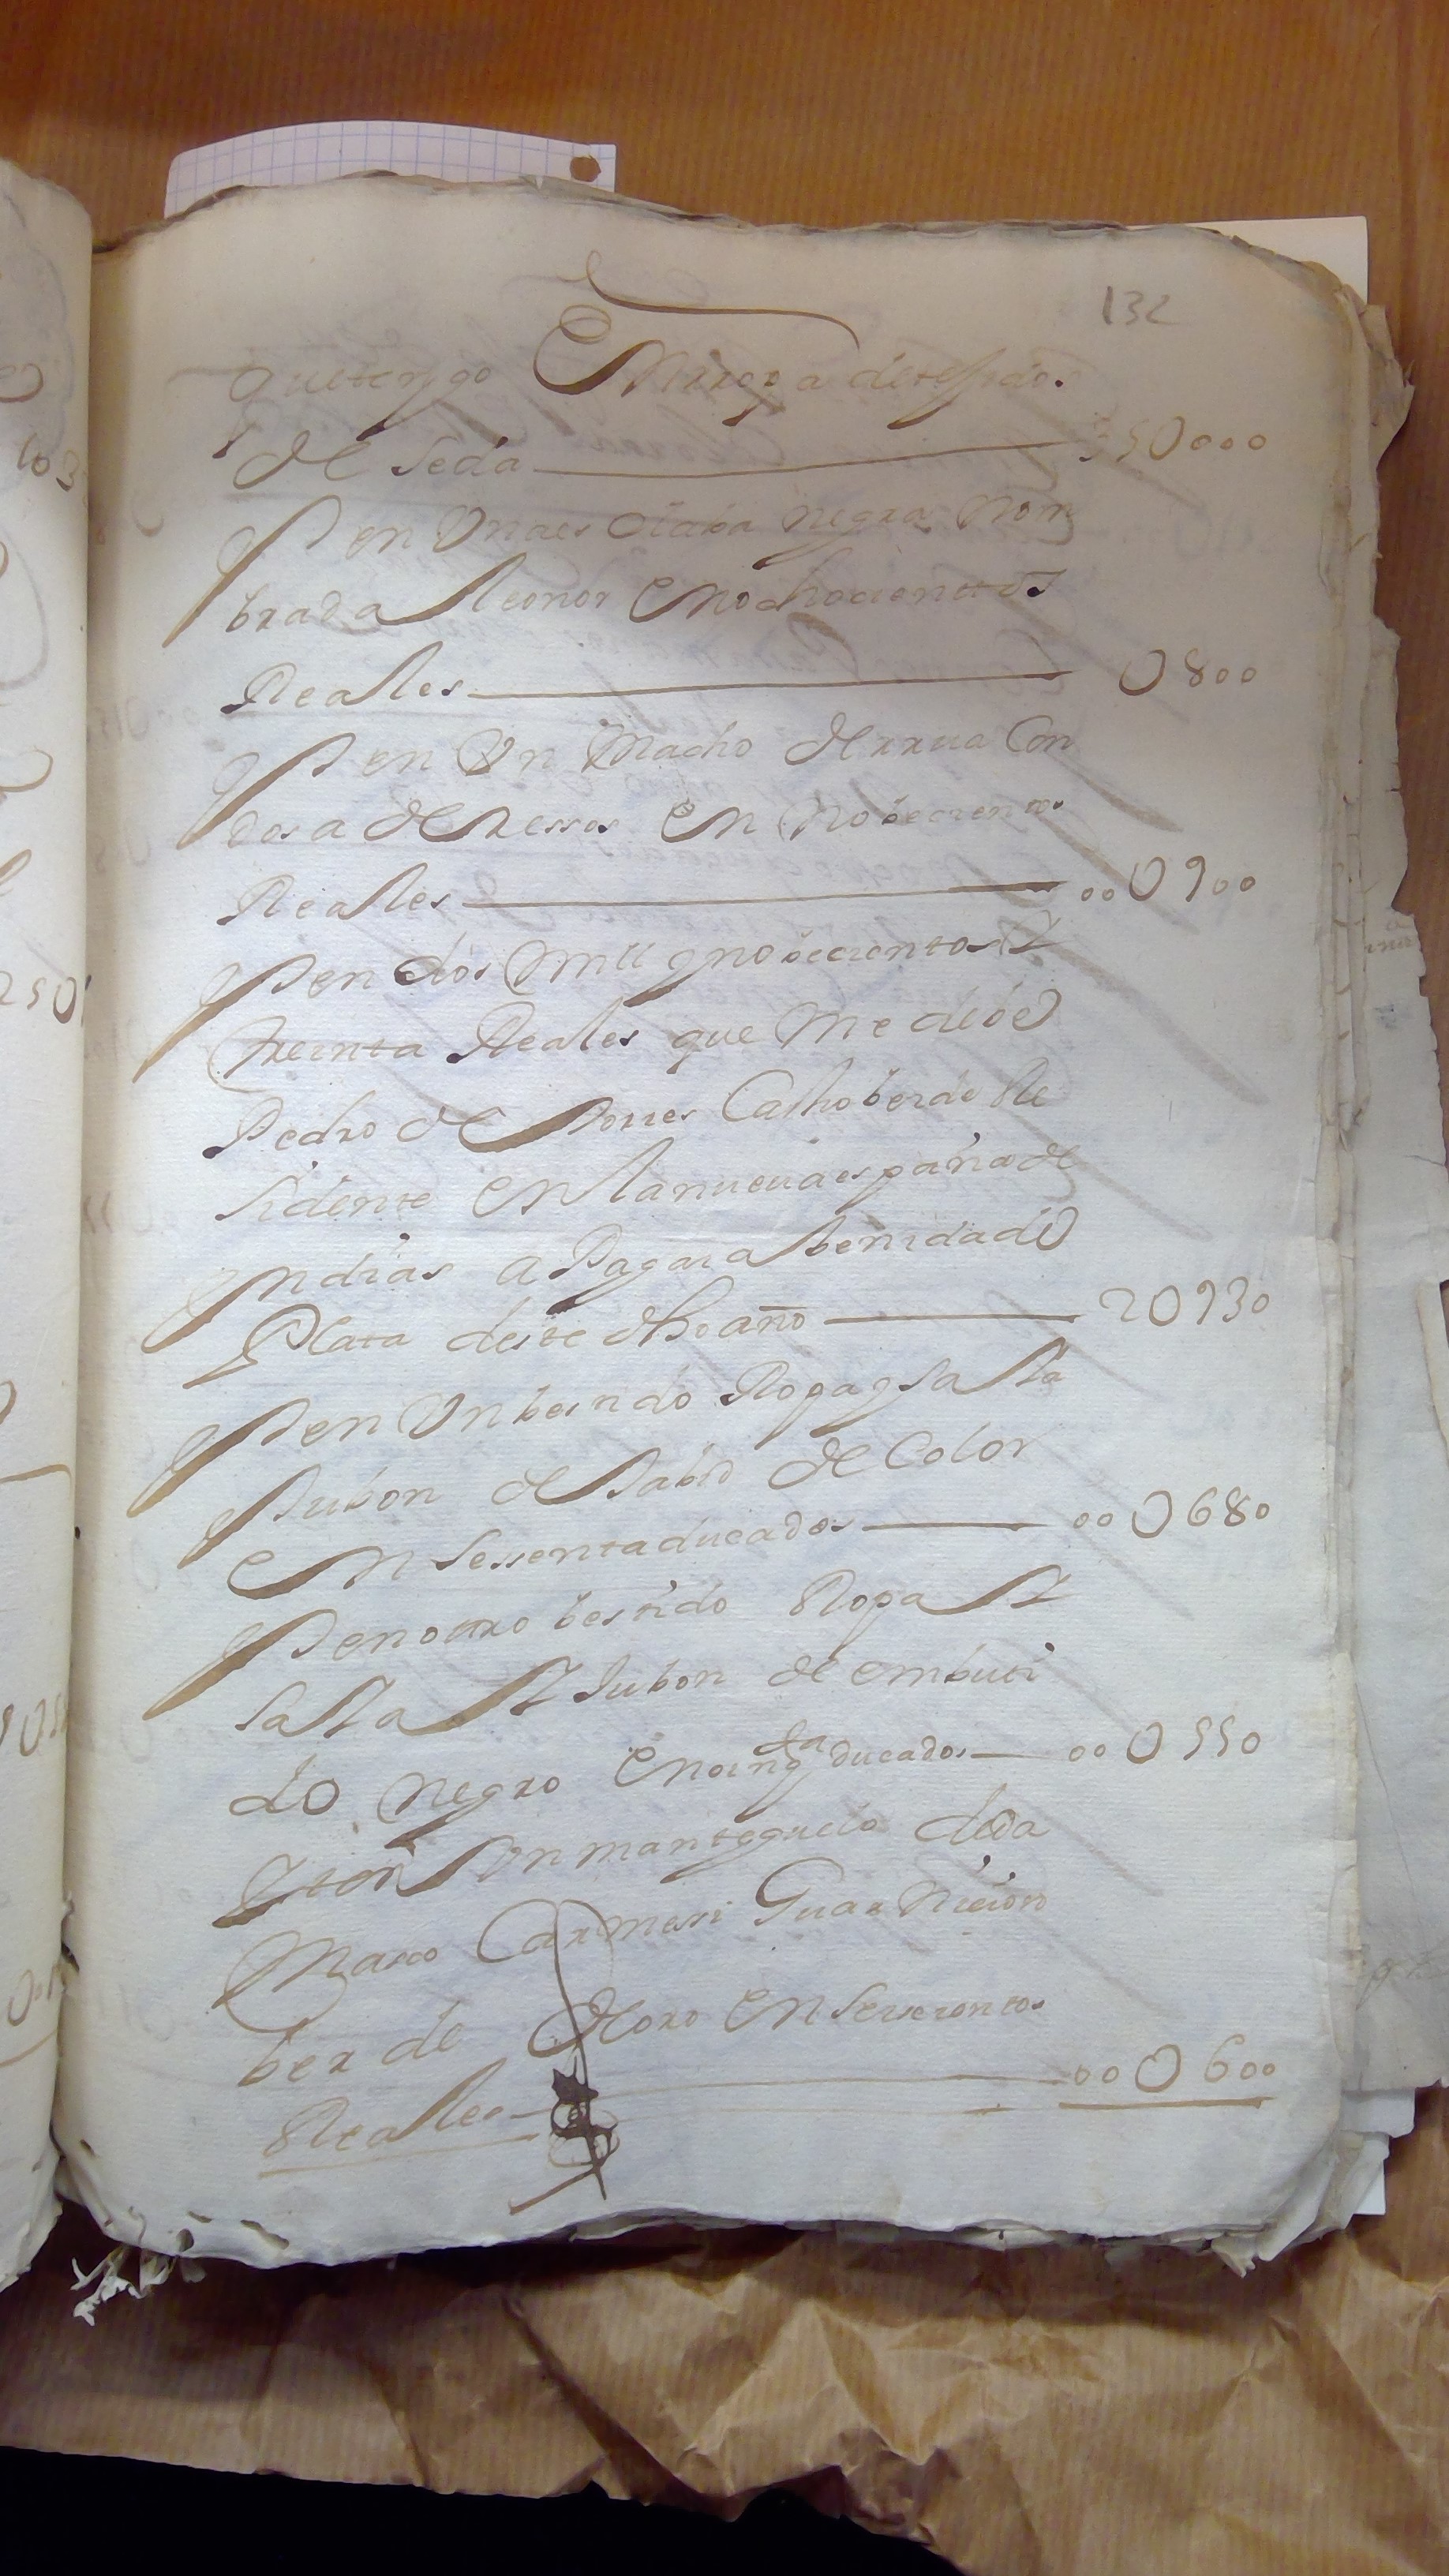 132
que tengo En rropa de tegidos
de seda 350000
Y en Una esclaba negra nom
brada leonor En ochocienttos
Reales 0800
Y en Un Macho de rrua Con
dos aderessos En nobecientos
Reales 000900
Y en dos mill y nobecientos Y
treinta Reales que me debe
Pedro de torres Castroberde Re
sidente En la nueua españa de
Yndias a Pagar a la benida de
Plata deste dho año 20930
Y en Un bestido Ropa y saya
Y Jubon de tabio de Color
En sessenta ducados 000680
Y en otro bestido Ropa Y
saya Y Jubon de embuti
do negro En cinqta ducados 000550
Yten Un manteguelo de da
masco Carmesi Guarnicion
berde Y oro En seiscientos
Reales 000600